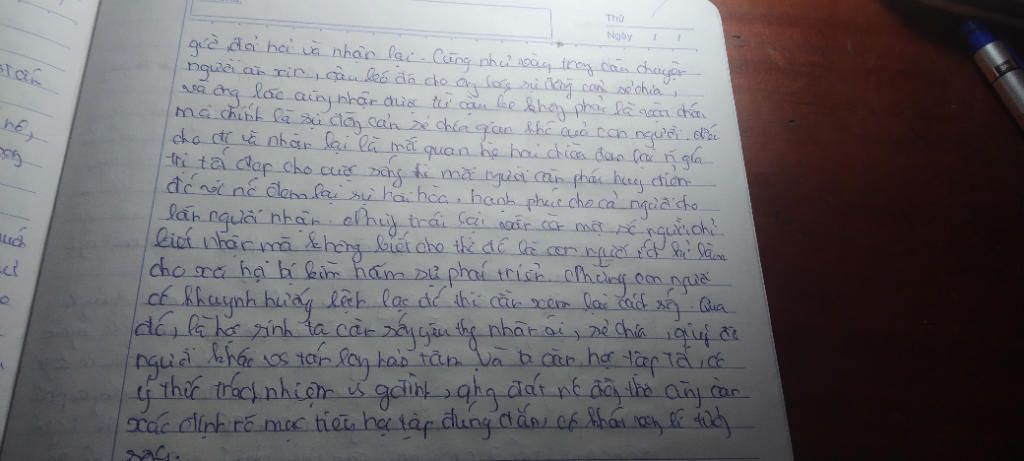 Thứ
Ngày / /
giờ đòi hỏi và nhận lại. Cũng như vậy trong câu chuyện
người ăn xin, cậu bé đã cho ông lão sự đồng cảm sẻ chia,
và ông lão cũng nhận được từ cậu bé không phải là vật chất
mà chính là sự đồng cảm sẻ chia gian khổ của con người.
cho đi và nhận lại là mối quan hệ hai chiều đem lại ý nghĩa
trị tốt đẹp cho cuộc sống thì mỗi người cần phát huy điều
đó vì nó đem lại sự hài hòa, hạnh phúc cho cả người cho
lẫn người nhận. trái lại vẫn có một số người chỉ
biết nhận mà không biết cho thì đó là con người ích kỉ làm
cho xã hội bị kìm hãm sự phát triển. Những con người
có khuynh hướng lệch lạc đó thì cần xem lại cách sống. Qua
đó, là học sinh ta cần sống yêu thg nhân ái, sẻ chia, giúp đỡ
người khác vs tấm lòng hảo tâm và cần học tập tốt, có
ý thức trách nhiệm vs gđình, qhg đất nc đồng thời cũng cần
xác định rõ mục tiêu học tập đúng đắn, có khát vọng lí tưởng
sống.